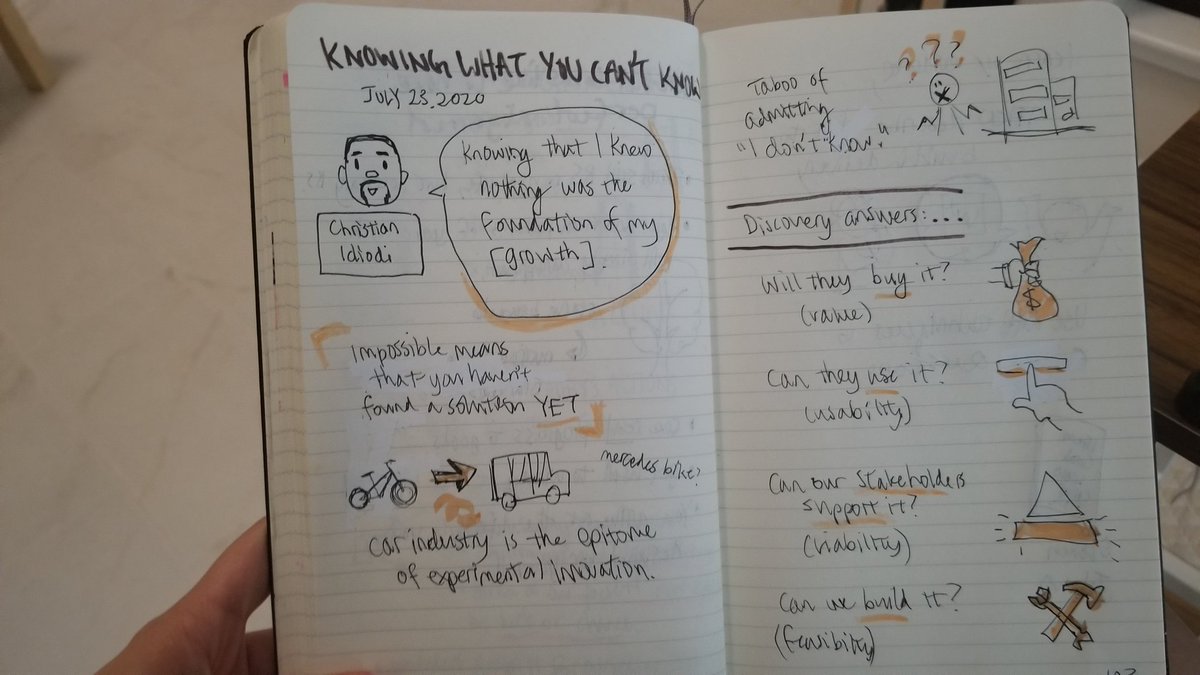 KNOWING WHAT YOU CAN'T KNOW
JULY 23, 2020
Knowing that I knew
nothing was the
foundation of my
[growth].
Christian
Idiodi
Impossible means
that you haven't
found a solution YET
mercedes bike?
car industry is the epitome
of experimental innovation.
Taboo of
admitting
"I don't know."
? ? ?
Discovery answers:...
Will they buy it?
(value)
$
Can they use it?
(usability)
Can our stakeholders
support it?
(viability)
Can we build it?
(feasibility)